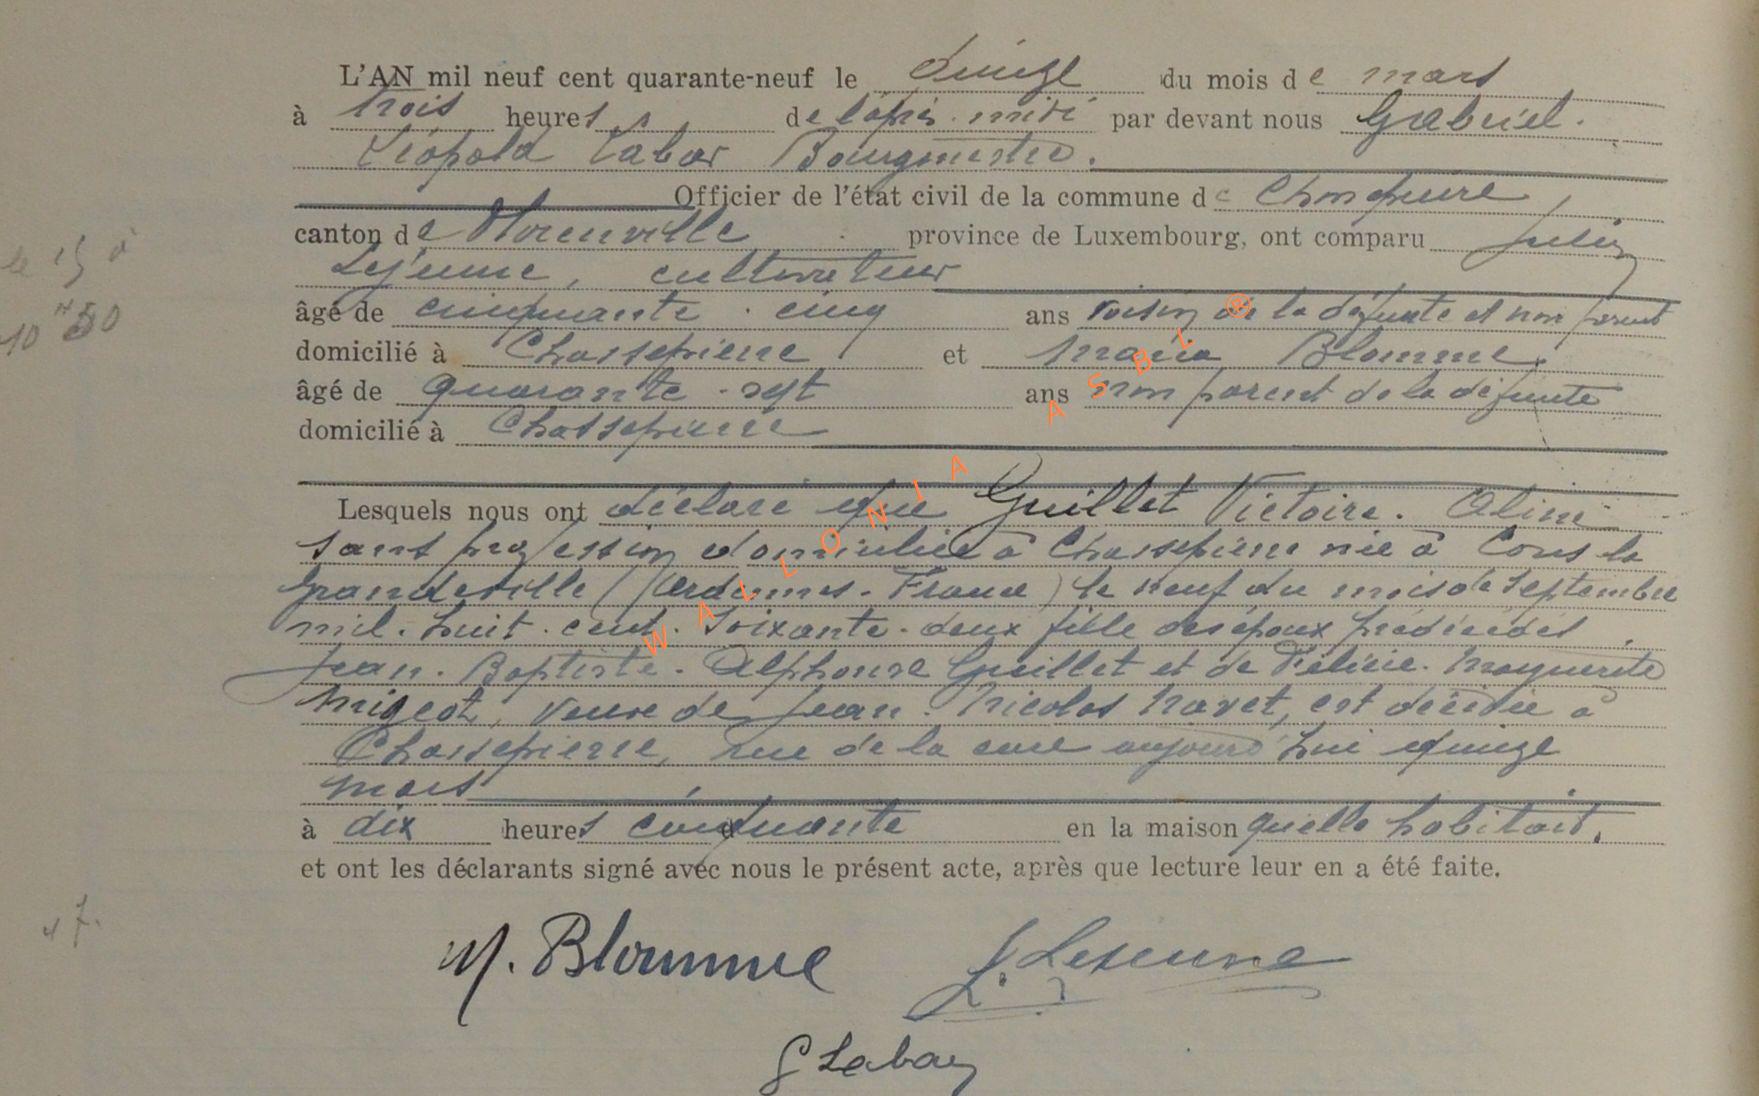 L'AN mil neuf cent quarante-neuf le quinze du mois de mars
à trois heures de l'après-midi par devant nous Gabriel
Léopold Labar Bourgmestre.
Officier de l'état civil de la commune de Chassepierre
canton de Florenville province de Luxembourg, ont comparu Julien
Lejeune, cultivateur
âgé de cinquante-cinq ans voisin de la défunte et non parent
domicilié à Chassepierre et Maria Blomme
âgé de quarante-sept ans non parent de la défunte
domicilié à Chassepierre
Lesquels nous ont déclaré que Guillet Victoire. Aline
sans profession domiciliée à Chassepierre née à Cons la
Grandeville (Ardennes-France) le neuf du mois de septembre
mil-huit-cent-soixante-deux fille des époux prédécédés
Jean-Baptiste-Alphonse Guillet et de Félicie-Marguerite
Migeot, veuve de Jean-Nicolas Navet, est décédée à
Chassepierre, rue de la cure aujourd'hui quinze
mars
à dix heures cinquante en la maison quelle habitait.
et ont les déclarants signé avec nous le présent acte, après que lecture leur en a été faite.
le 15 à
10 H 50
M. Blomme J. Lejeune
G Labar
WALLONIA ASBL ®